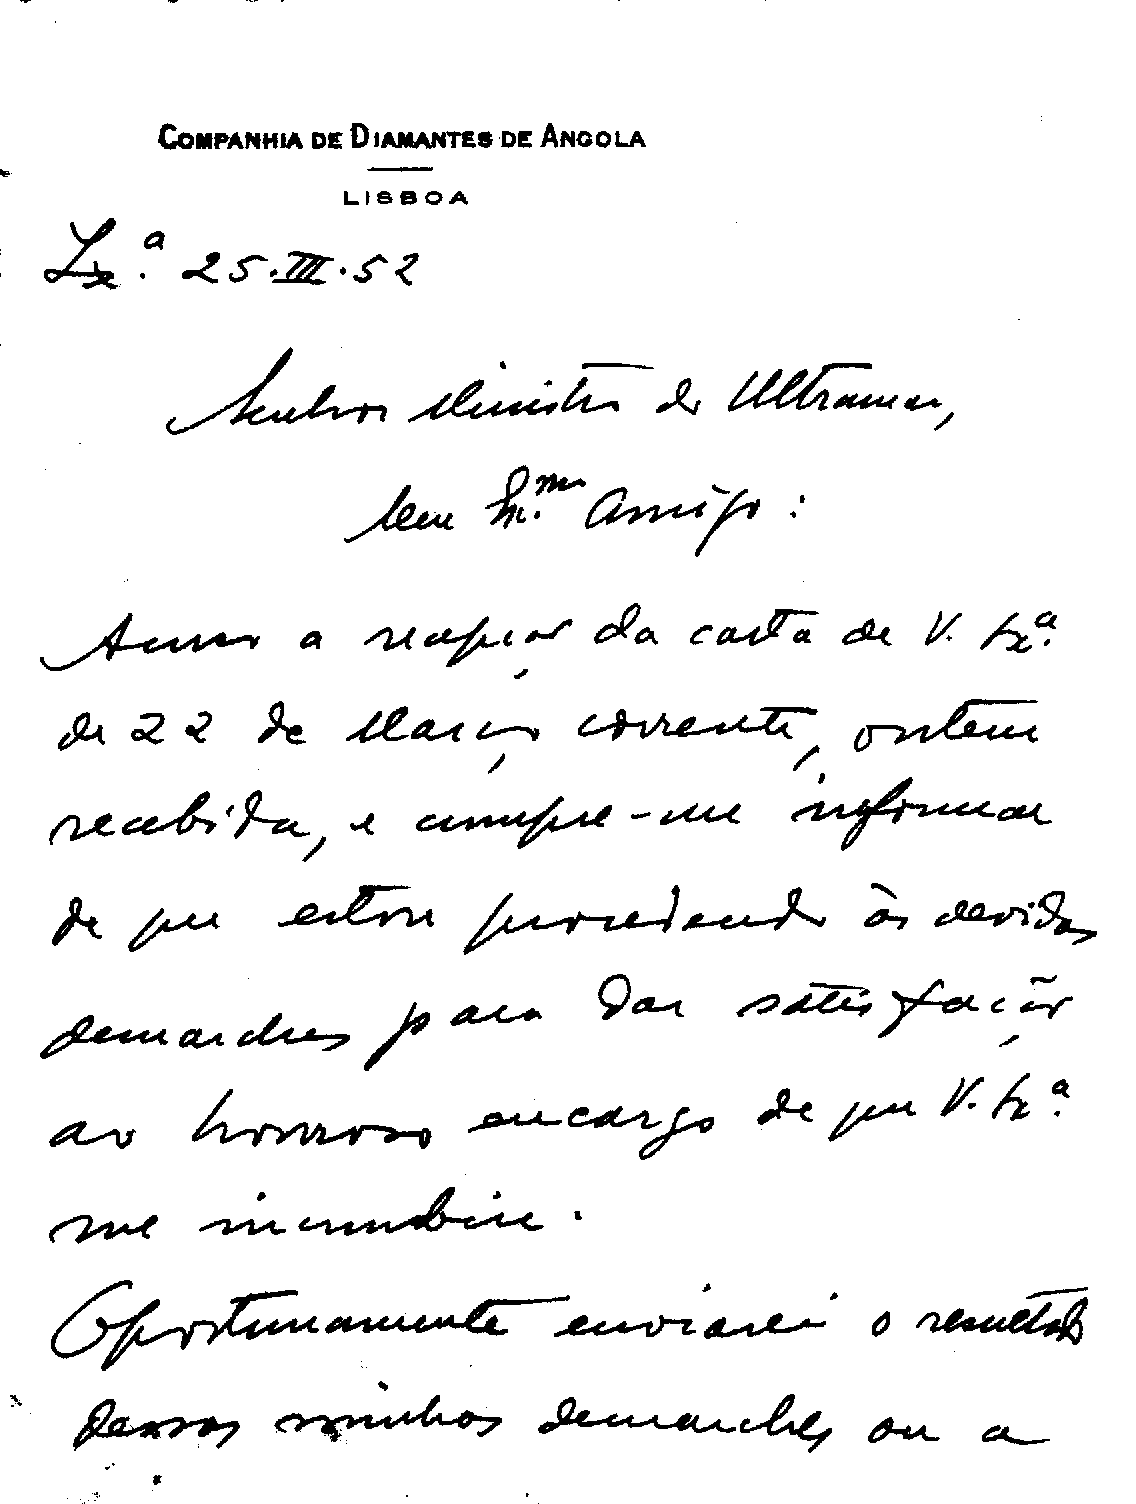 COMPANHIA DE DIAMANTES DE ANGOLA
LISBOA
Lx.ª 25.III.52
Senhor Ministro do Ultramar,
Meu Amigo:
Acuso a recepção da carta de V. Exª.
de 22 de Março corrente, ontem
recebida, e cumpre-me informar
de que estou procedendo às devidas
demarches para dar satisfação
ao honroso encargo de que V. Ex.ª
me incumbiu.
Oportunamente enviarei o resultado
dessas minhas demarches ou a